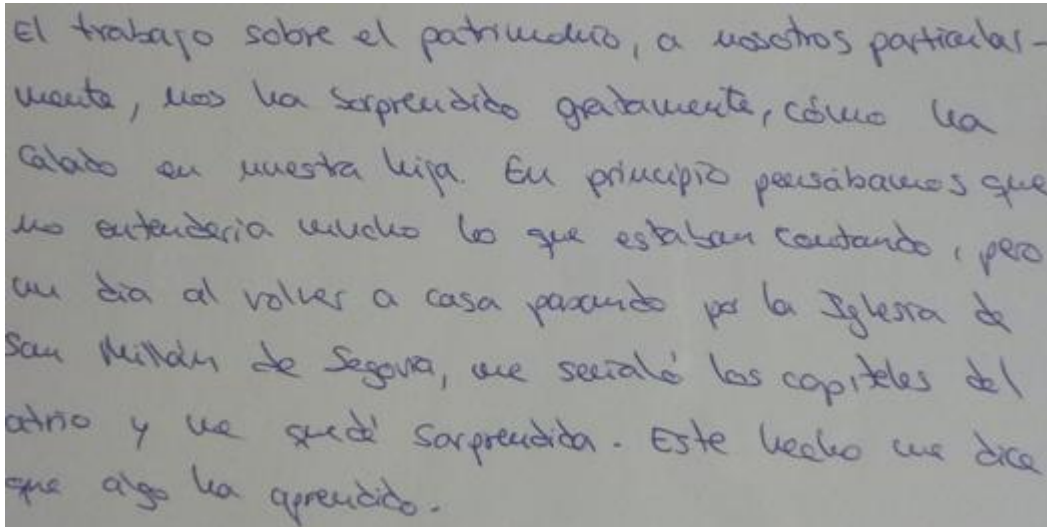 El trabajo sobre el patrimonio, a nosotros particular-
mente, nos ha sorprendido gratamente, cómo ha
calado en nuestra hija. En principio pensábamos que
no entendería mucho lo que estaban contando, pero
un día al volver a casa pasando por la Iglesia de
San Millán de Segovia, me señaló los capiteles del
atrio y me quedé sorprendida. Este hecho me dice
que algo ha aprendido.